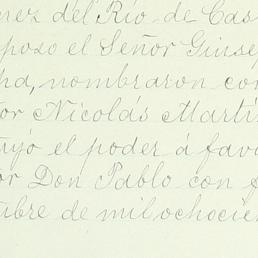 nez del Río de Cas
poso el Señor Giusep
na, nombraron con
or Nicolás Martí
uyó el poder á favo
or Don Pablo con f
ubre de mil ochocien